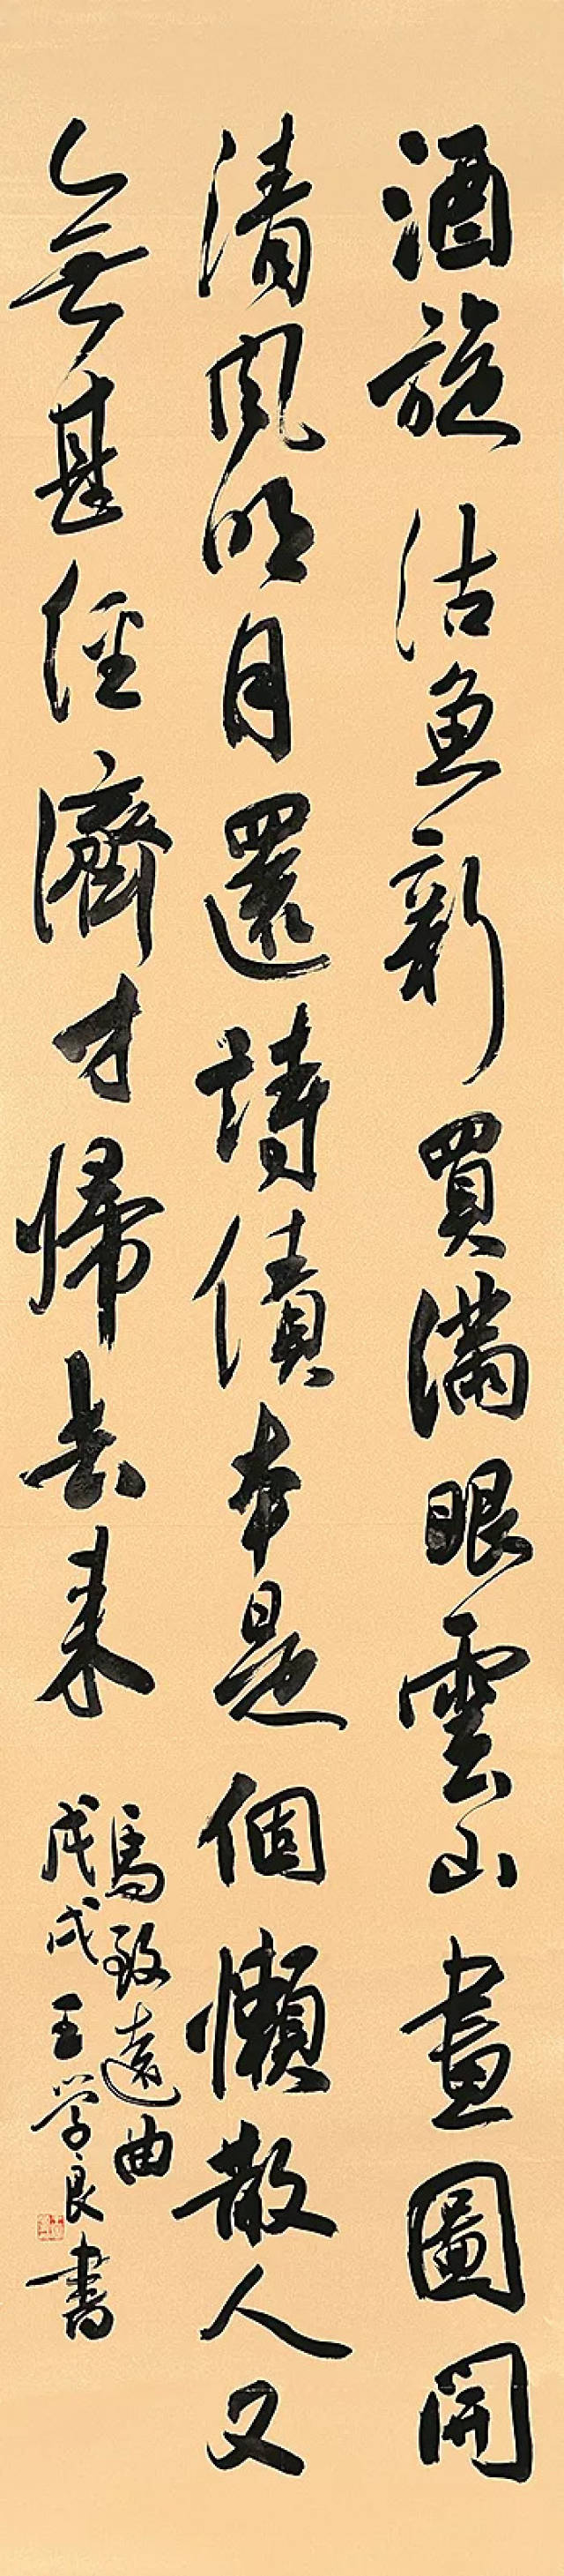 酒旋沽魚新買滿眼雲山畫圖開
清風明月還詩債本是個懶散人又
無甚經濟才歸去來
馬致遠曲
戊戌王学良書